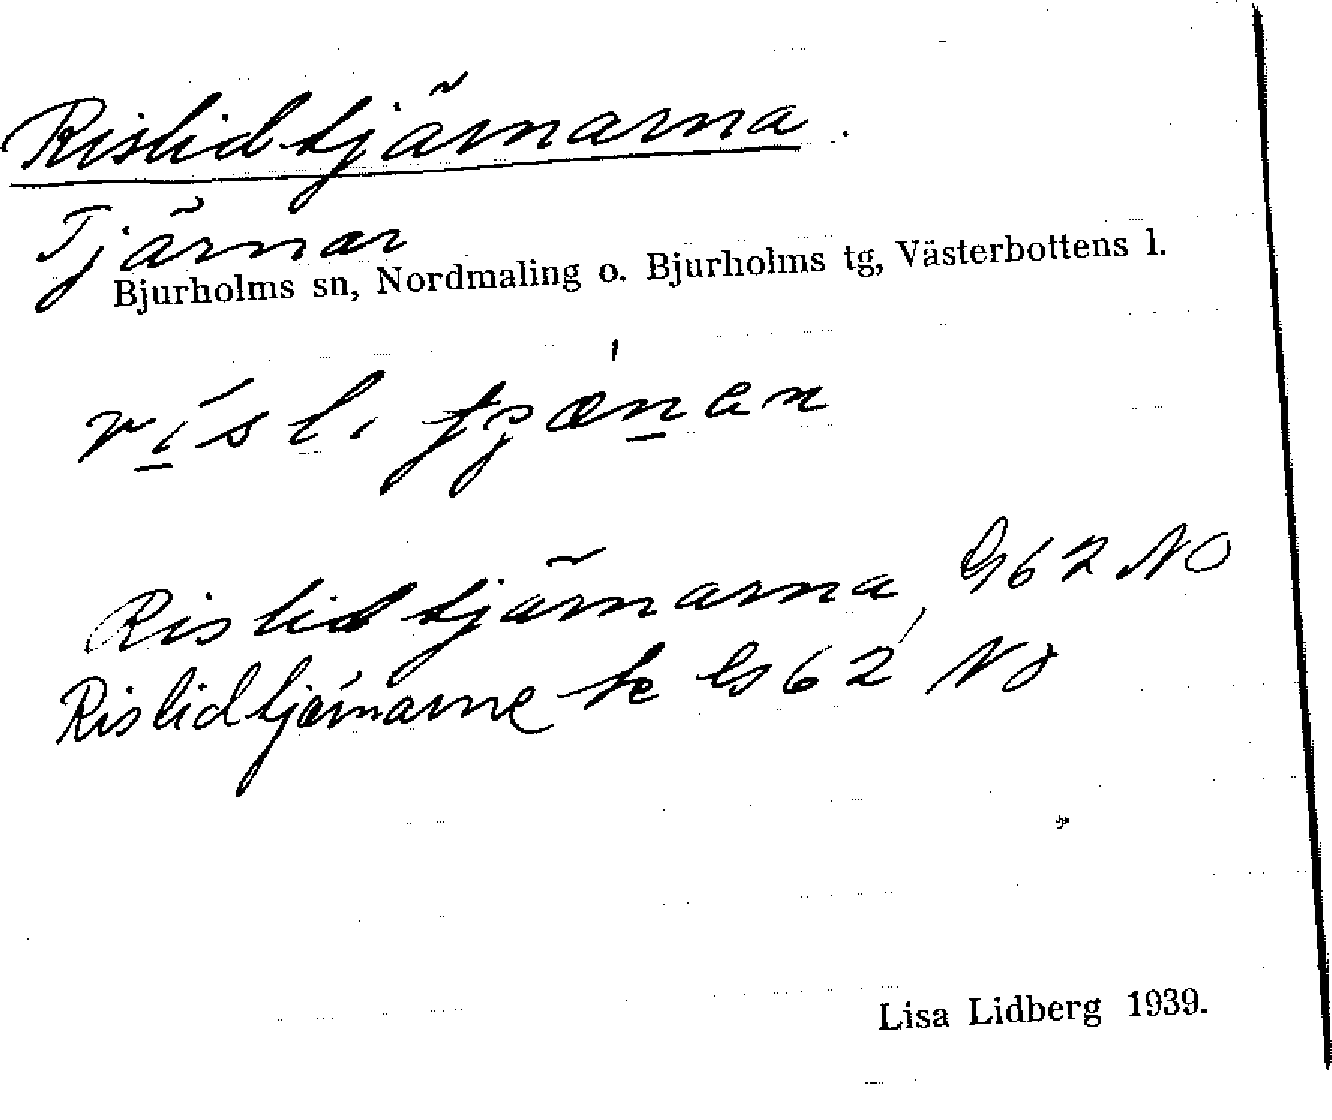 Rislidtjärnarna.
Tjärnar
Bjurholms sn, Nordmaling o. Bjurholms tg, Västerbottens l.
Rislidtjärnarna, G 62 NO
Rislidtjärnarne G 62 NO
Lisa Lidberg 1939.